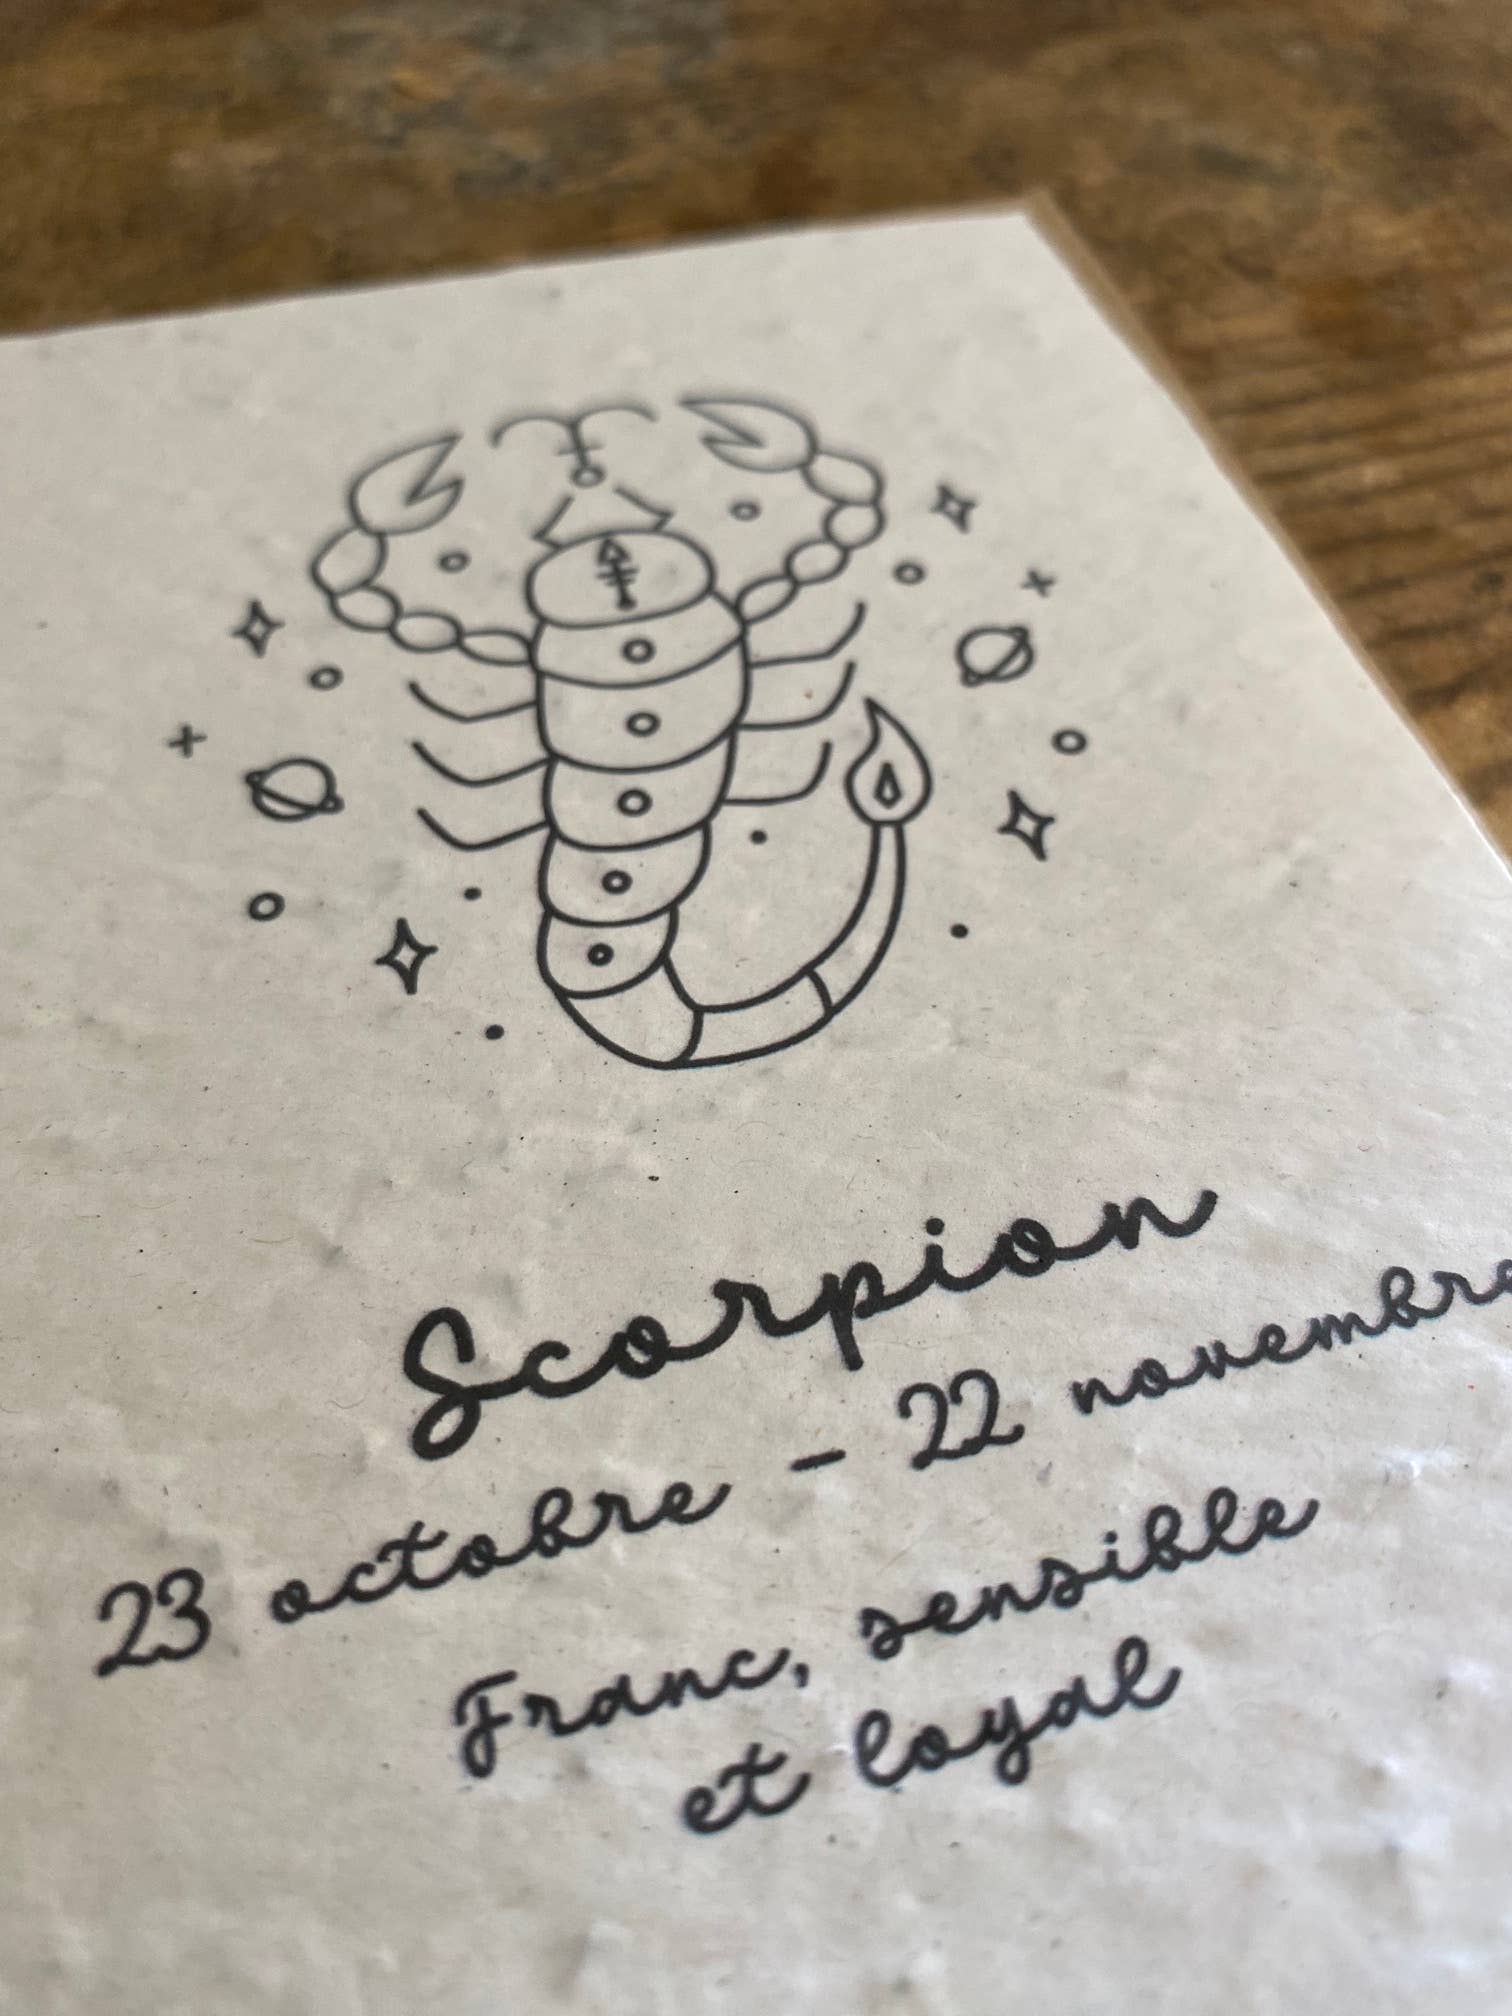 Scorpion
23 octobre - 22 novembre
Franc, sensible
et loyal